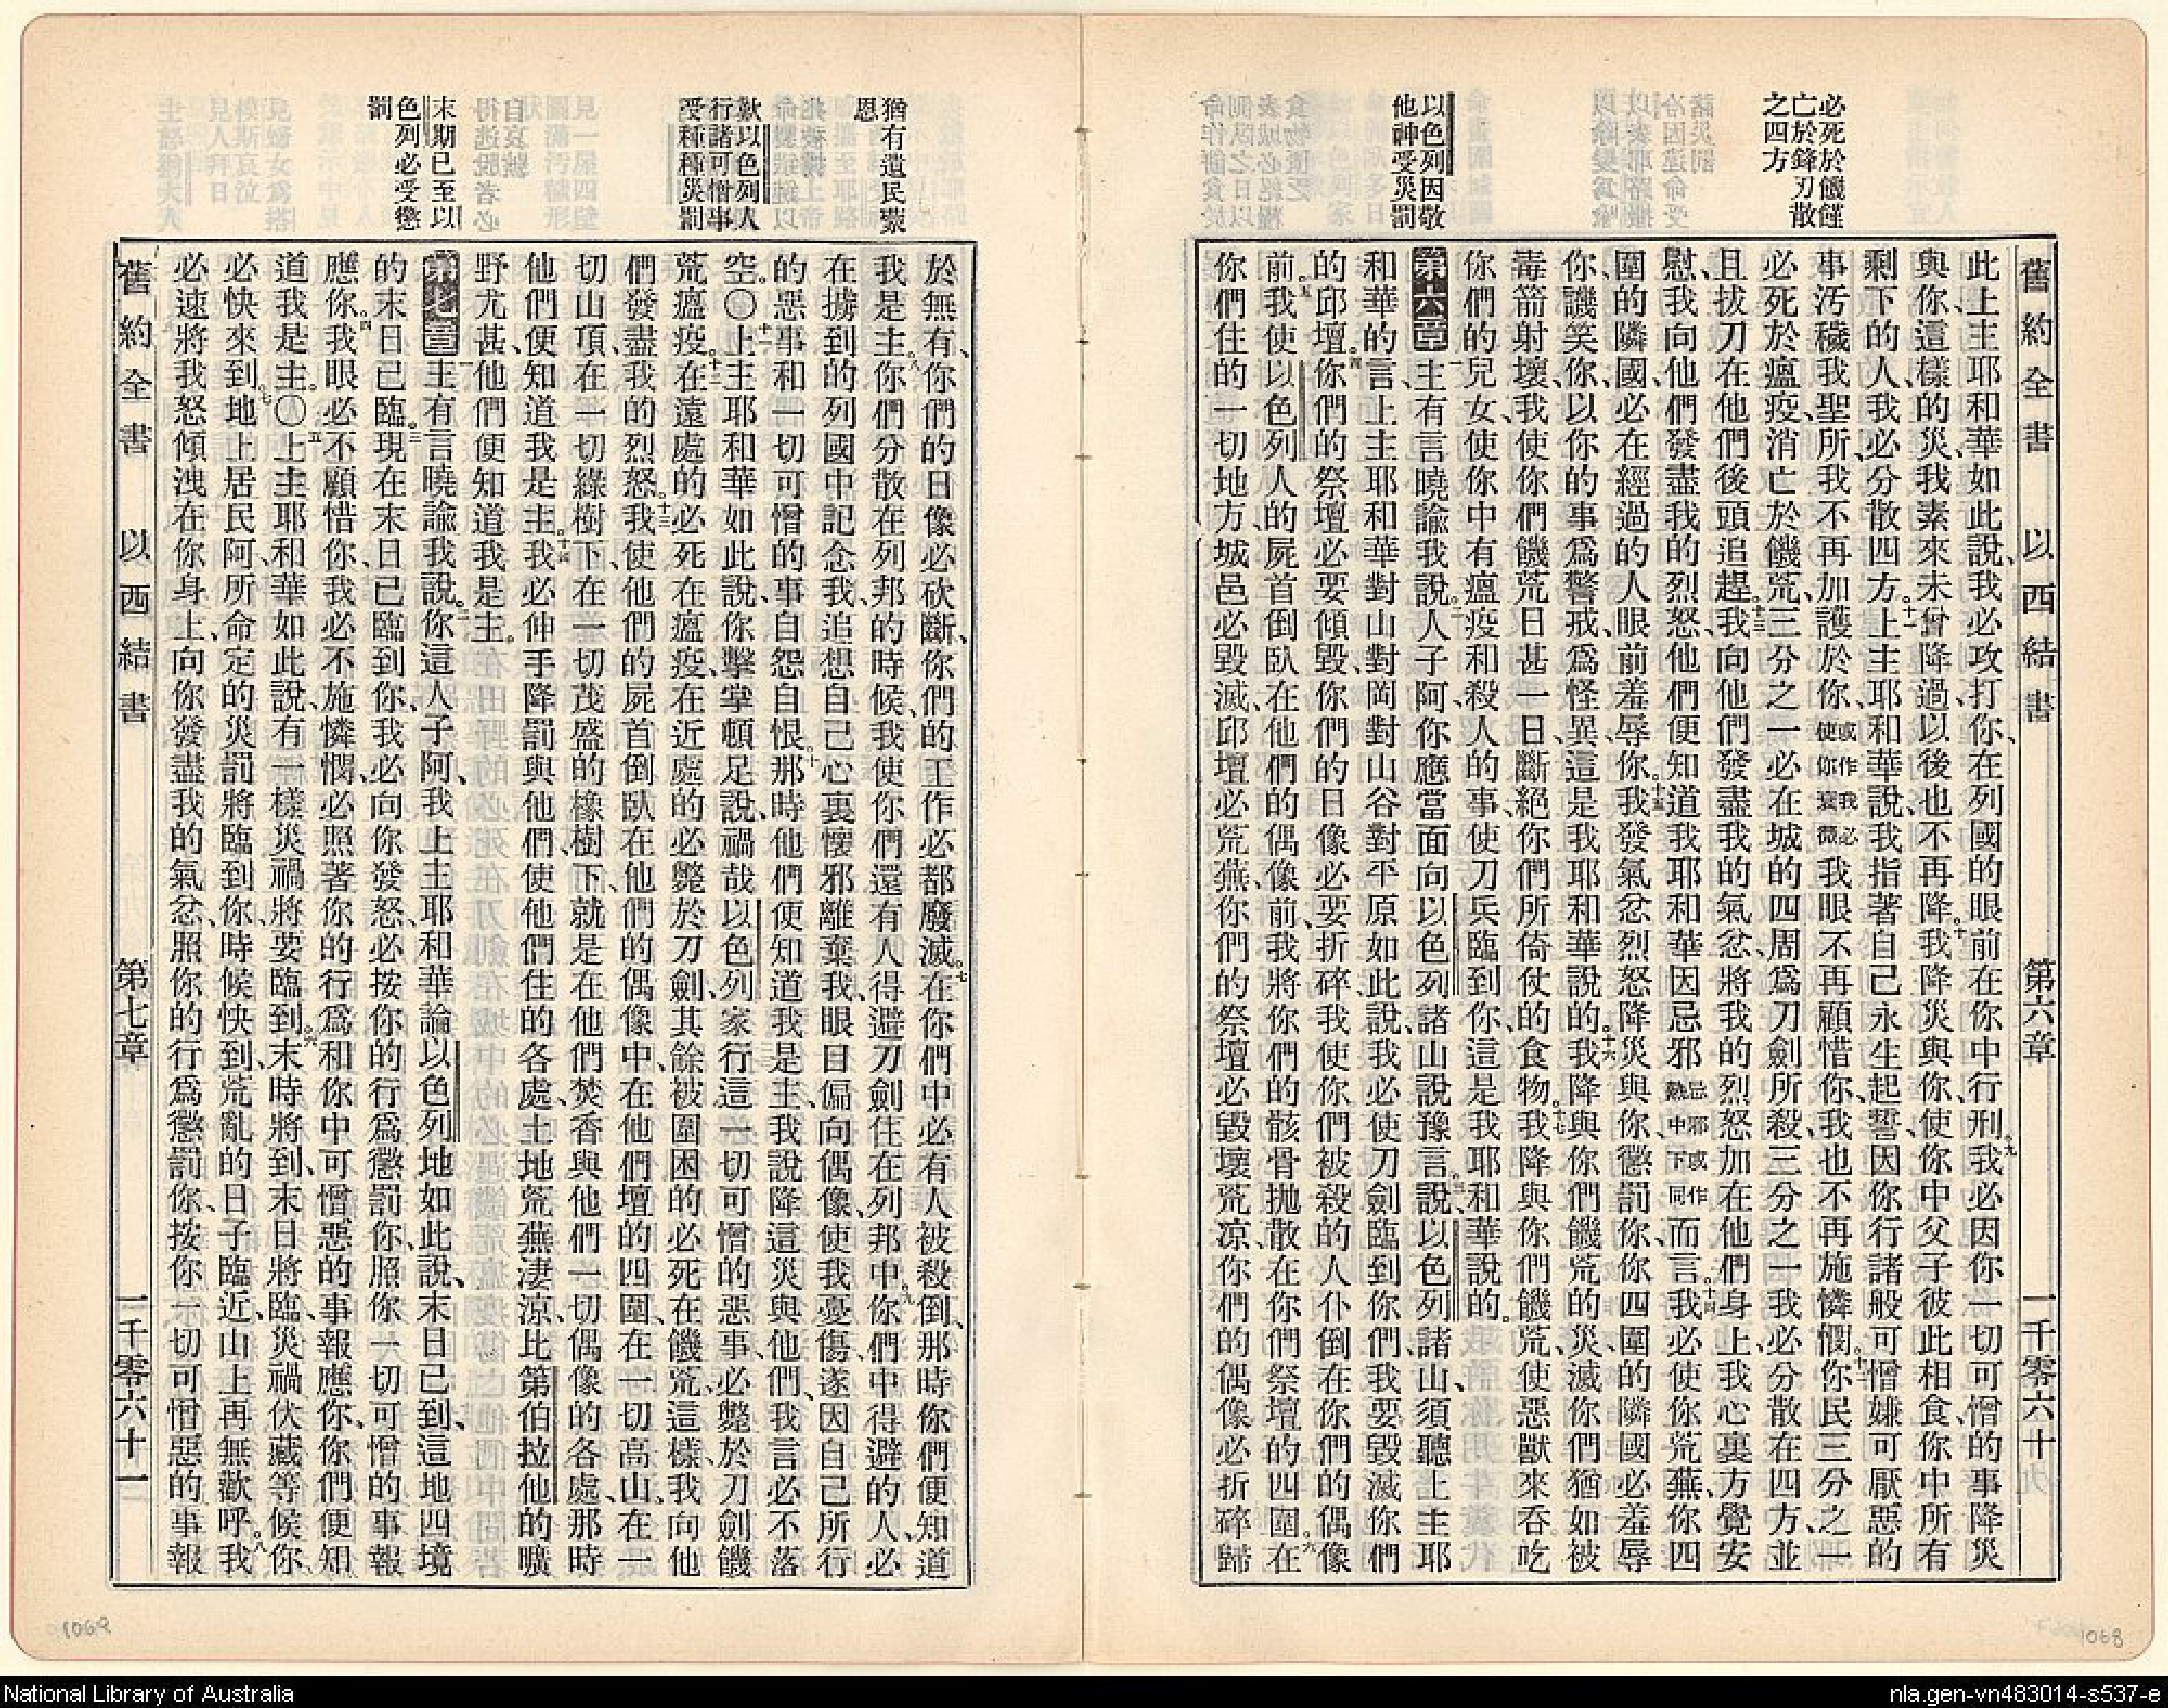 必死於饑饉
亡於鋒刃散
之四方
以色列因敬
他神受災罰
舊約全書 以西結書 第六章 一千零六十
此上主耶和華如此說、我必攻打你、在列國的眼前在你中行刑。九我必因你一切可憎的事降災
與你、這樣的災、我素來未曾降過、以後也不再降。十我降災與你、使你中父子彼此相食、你中所有
剩下的人、我必分散四方。十一上主耶和華說、我指著自己永生起誓、因你行諸般可憎嫌可厭惡的
事汚穢我聖所、我不再加護於你、或作我必使你衰微我眼不再顧惜你、我也不再施憐憫。十二你民三分之一
必死於瘟疫、消亡於饑荒、三分之一必在城的四周爲刀劍所殺、三分之一我必分散在四方、並
且拔刀在他們後頭追趕。十三我向他們發盡我的氣忿、將我的烈怒加在他們身上、我心裏方覺安
慰、我向他們發盡我的烈怒、他們便知道我耶和華因忌邪忌邪或作熱中下同而言。十四我必使你荒蕪、你四
圍的隣國、必在經過的人眼前羞辱你。十五我發氣忿烈怒降災與你、懲罰你、你四圍的隣國必羞辱
你、譏笑你、以你的事爲警戒、爲怪異、這是我耶和華說的。十六我降與你們饑荒的災、滅你們猶如被
毒箭射壞、我使你們饑荒日甚一日、斷絕你們所倚仗的食物。十七我降與你們饑荒、使惡獸來吞吃
你們的兒女、使你中有瘟疫和殺人的事、使刀兵臨到你、這是我耶和華說的。
第六章 一主有言曉諭我說。二人子阿、你應當面向以色列諸山說豫言說、三以色列諸山、須聽上主耶
和華的言、上主耶和華對山對岡對山谷對平原如此說、我必使刀劍臨到你們、我要毀滅你們
的邱壇。四你們的祭壇必要傾毀、你們的日像必要折碎、我使你們被殺的人仆倒在你們的偶像
前。五我使以色列人的屍首倒臥在他們的偶像前、我將你們的骸骨拋散在你們祭壇的四圍。六在
你們住的一切地方、城邑必毀滅、邱壇必荒蕪、你們的祭壇必毀壞荒凉、你們的偶像必折碎歸
1068
猶有遺民蒙
恩
歎以色列人
行諸可憎事
受種種災罰
末期已至以
色列必受懲
罰
於無有、你們的日像必砍斷、你們的工作必都廢滅。七在你們中必有人被殺倒、那時你們便知道
我是主。八你們分散在列邦的時候、我使你們還有人得避刀劍住在列邦中。九你們中得避的人、必
在擄到的列國中記念我、追想自己心裏懷邪離棄我、眼目偏向偶像、使我憂傷、遂因自己所行
的惡事和一切可憎的事、自怨自恨。十那時他們便知道我是主、我說降這災與他們、我言必不落
空。〇十一上主耶和華如此說、你擊掌頓足說、禍哉以色列家行這一切可憎的惡事、必斃於刀劍饑
荒瘟疫。十二在遠處的必死在瘟疫、在近處的必斃於刀劍、其餘被圍困的必死在饑荒、這樣我向他
們發盡我的烈怒。十三我使他們的屍首倒臥在他們的偶像中、在他們壇的四圍、在一切高山、在一
切山頂、在一切綠樹下、在一切茂盛的橡樹下、就是在他們焚香與他們一切偶像的各處、那時
他們便知道我是主。十四我必伸手降罰與他們、使他們住的各處、土地荒蕪凄涼、比第伯拉他的曠
野尤甚、他們便知道我是主。
第七章 一主有言曉諭我說。二你這人子阿、我上主耶和華論以色列地如此說、末日已到、這地四境
的末日已臨。三現在末日已臨到你、我必向你發怒、必按你的行爲懲罰你、照你一切可憎的事報
應你。四我眼必不顧惜你、我必不施憐憫、必照著你的行爲和你中可憎惡的事報應你、你們便知
道我是主。〇五上主耶和華如此說、有一樣災禍將要臨到。六末時將到、末日將臨、災禍伏藏等候你、
必快來到。七地上居民阿、所命定的災罰將臨到你、時候快到、荒亂的日子臨近、山上再無歡呼。八我
必速將我怒傾洩在你身上、向你發盡我的氣忿、照你的行爲懲罰你、按你一切可憎惡的事報
舊約全書 以西結書 第七章 一千零六十一
1069
National Library of Australia
nla.gen-vn483014-s537-e